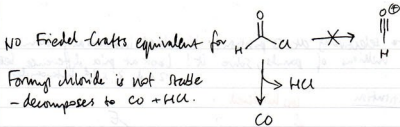 NO Friedel-Crafts equivalent for
Formyl chloride is not stable
- decomposes to CO + HCl.
O
H Cl
O
⊕
H
HCl
CO